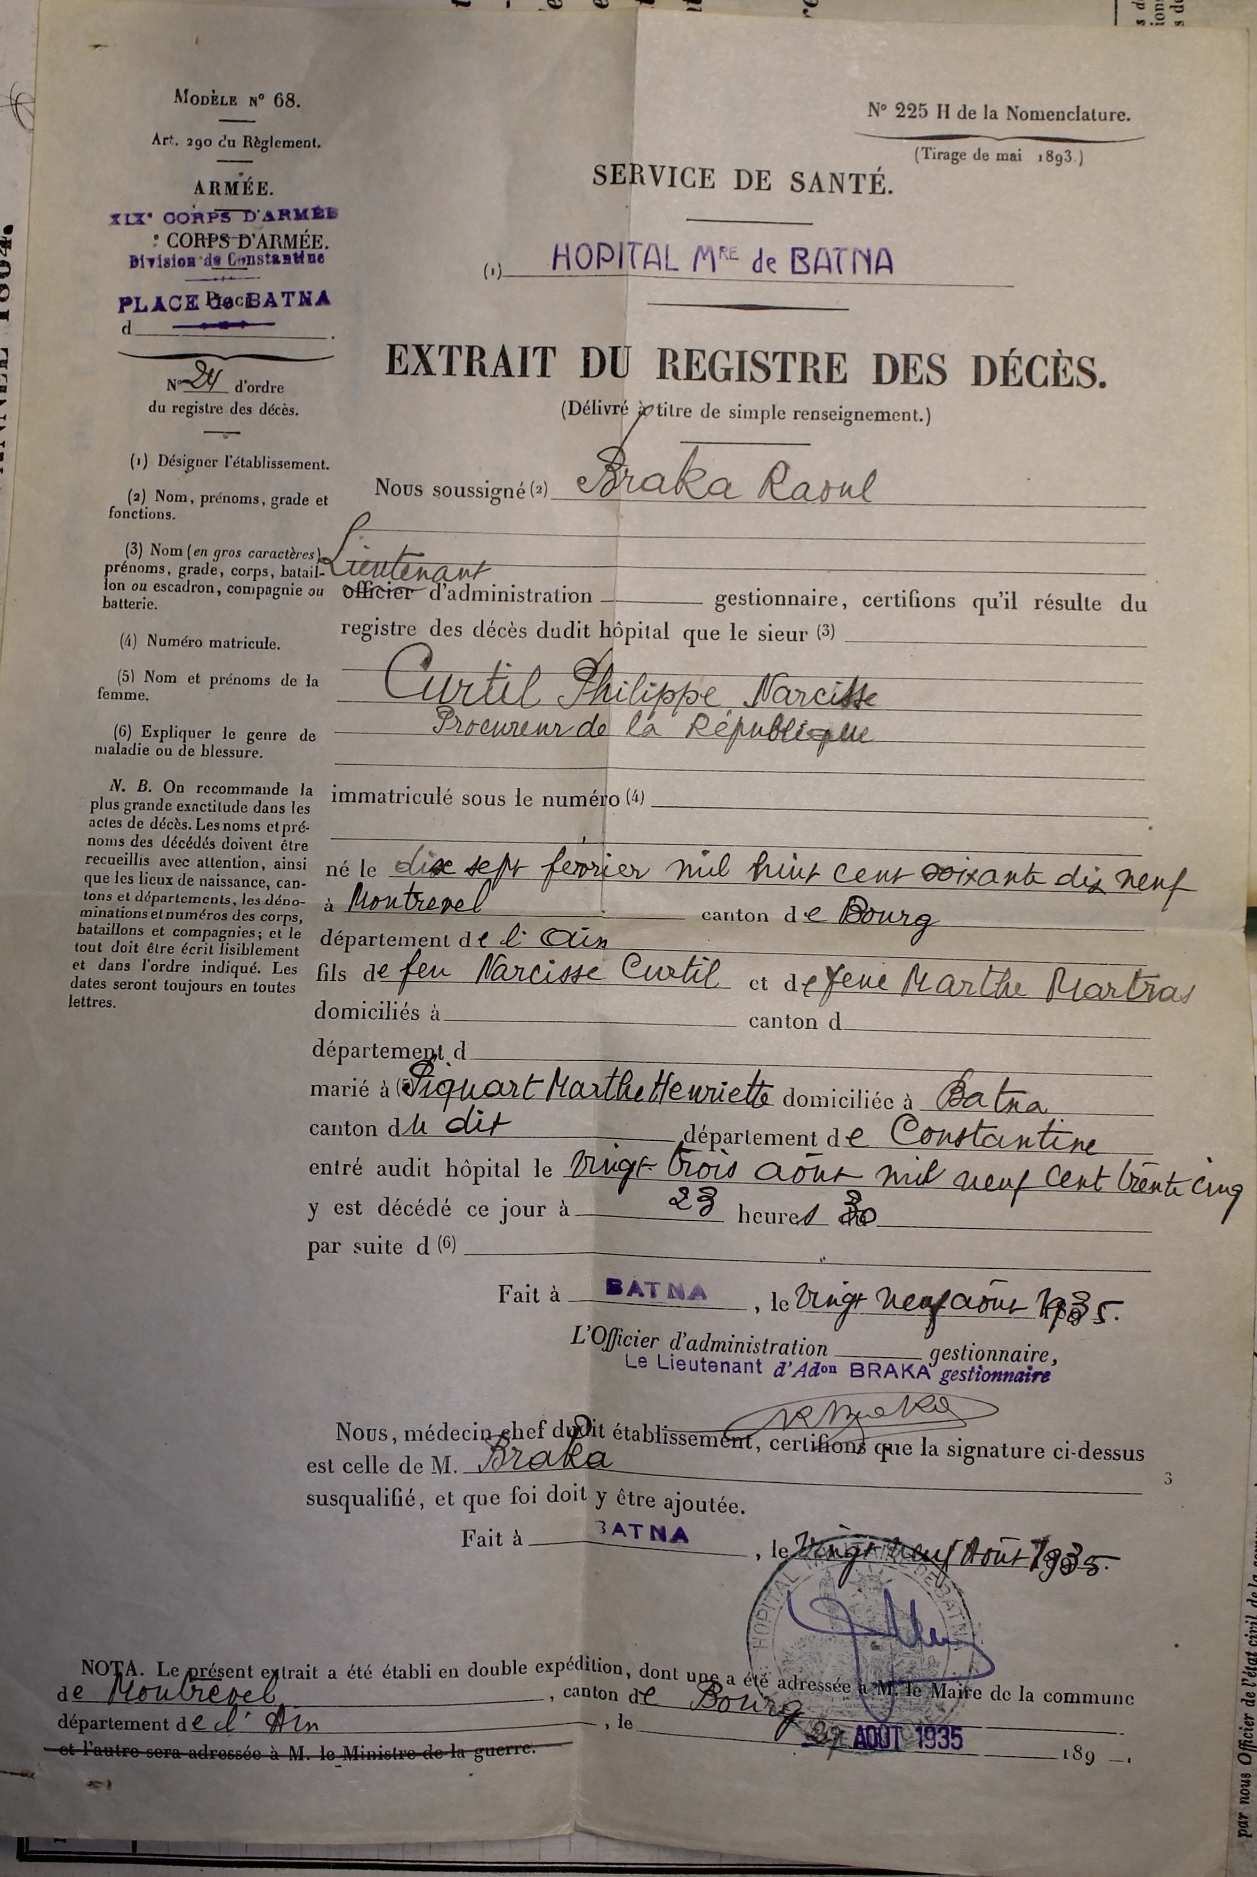 MODÈLE N° 68.
Art. 290 du Règlement.
ARMÉE.
XIX° CORPS D'ARMÉE
CORPS D'ARMÉE.
Division de Constantine
PLACE de BATNA
d
N° 24 d'ordre
du registre des décès.
(1) Désigner l'établissement.
(2) Nom, prénoms, grade et
fonctions.
(3) Nom (en gros caractères)
prénoms, grade, corps, batail-
lon ou escadron, compagnie ou
batterie.
(4) Numéro matricule.
(5) Nom et prénoms de la
femme.
(6) Expliquer le genre de
maladie ou de blessure.
N. B. On recommande la
plus grande exactitude dans les
actes de décès. Les noms et pré-
noms des décédés doivent être
recueillis avec attention, ainsi
que les lieux de naissance, can-
tons et départements, les déno-
minations et numéros des corps,
bataillons et compagnies; et le
tout doit être écrit lisiblement
et dans l'ordre indiqué. Les
dates seront toujours en toutes
lettres.
N° 225 H de la Nomenclature.
(Tirage de mai 1893.)
SERVICE DE SANTÉ.
(1) HOPITAL MRE de BATNA
EXTRAIT DU REGISTRE DES DÉCÈS.
(Délivré à titre de simple renseignement.)
Nous soussigné (2) Braka Raoul
Lieutenant
officier d'administration gestionnaire, certifions qu'il résulte du
registre des décès dudit hôpital que le sieur (3)
Curtil Philippe Narcisse
Procureur de la République
immatriculé sous le numéro (4)
né le dix sept février mil huit cent soixante dix neuf
à Montrevel canton de Bourg
département de l'Ain
fils de feu Narcisse Curtil et de feue Marthe Martras
domiciliés à canton d
département d
marié à Piquart Marthe Henriette domiciliée à Batna
canton du dit département de Constantine
entré audit hôpital le vingt trois août mil neuf cent trente cinq
y est décédé ce jour à 23 heures 30
par suite d (6)
Fait à BATNA, le vingt neuf août 1935.
L'Officier d'administration gestionnaire,
Le Lieutenant d'Adon BRAKA gestionnaire
Nous, médecin chef dudit établissement, certifions que la signature ci-dessus
est celle de M. Braka
3
susqualifié, et que foi doit y être ajoutée.
Fait à BATNA, le vingt neuf Août 1935.
HOPITAL MILITAIRE DE BATNA
NOTA. Le présent extrait a été établi en double expédition, dont une a été adressée à M. le Maire de la commune
de Montrevel, canton de Bourg
département de l'Ain, le 29 AOUT 1935 189 .
et l'autre sera adressée à M. le Ministre de la guerre.
par nous Officier de l'état civil de la